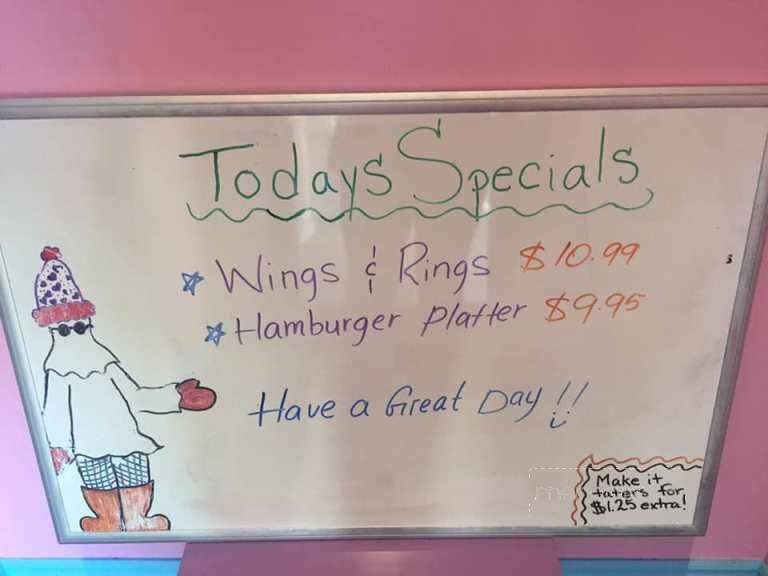 Todays Specials
Wings & Rings $10.99
Hamburger Platter $9.95
Have a Great Day !!
Make it
taters for
$1.25 extra!